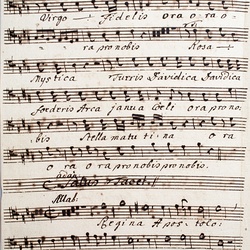 Virgo Fidelis ora o ra o
ra
ra pro nobis Rosa
Mystica Turris Davidica Davidica
foederis Arca janua Celi ora pro no:
bis Stella matu ti na o ra
o ra o ra pro nobis pro nobis.
Salus Tacet.
Allab:
Regina Apos tolo: